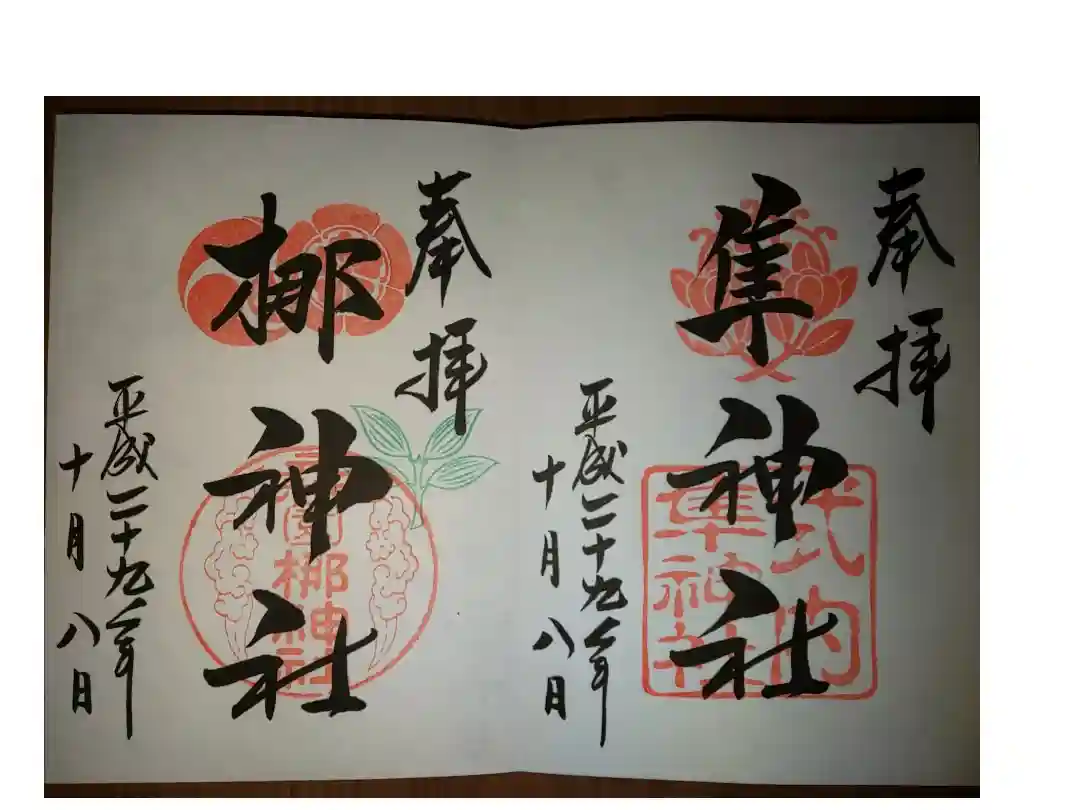 奉拝
隼神社
式内
隼神社
平成二十九年
十月八日
奉拝
梛神社
園梛神社
平成二十九年
十月八日